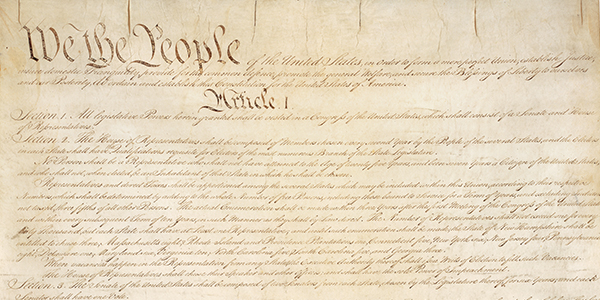 We the People of the United States, in Order to form a more perfect Union, establish Justice,
insure domestic Tranquility, provide for the common defence, promote the general Welfare, and secure the Blessings of Liberty to ourselves
and our Posterity, do ordain and establish this Constitution for the United States of America.
Article I
Section. 1. All legislative Powers herein granted shall be vested in a Congress of the United States, which shall consist of a Senate and House
of Representatives.
Section. 2. The House of Representatives shall be composed of Members chosen every second Year by the People of the several States, and the Electors
in each State shall have the Qualifications requisite for Electors of the most numerous Branch of the State Legislature.
No Person shall be a Representative who shall not have attained to the Age of twenty five Years, and been seven Years a Citizen of the United States,
and who shall not, when elected, be an Inhabitant of that State in which he shall be chosen.
Representatives and direct Taxes shall be apportioned among the several States which may be included within this Union, according to their respective
Numbers, which shall be determined by adding to the whole Number of free Persons, including those bound to Service for a Term of Years, and excluding Indians
not taxed, three fifths of all other Persons. The actual Enumeration shall be made within three Years after the first Meeting of the Congress of the United States,
and within every subsequent Term of ten Years, in such Manner as they shall by Law direct. The Number of Representatives shall not exceed one for every
thirty Thousand, but each State shall have at Least one Representative; and until such enumeration shall be made, the State of New Hampshire shall be
entitled to chuse three, Massachusetts eight, Rhode Island and Providence Plantations one, Connecticut five, New York six, New Jersey four, Pennsylvania
eight, Delaware one, Maryland six, Virginia ten, North Carolina five, South Carolina five, and Georgia three.
When vacancies happen in the Representation from any State, the Executive Authority thereof shall issue Writs of Election to fill such Vacancies.
The House of Representatives shall chuse their Speaker and other Officers; and shall have the sole Power of Impeachment.
Section. 3. The Senate of the United States shall be composed of two Senators from each State, chosen by the Legislature thereof, for six Years; and each
Senator shall have one Vote.